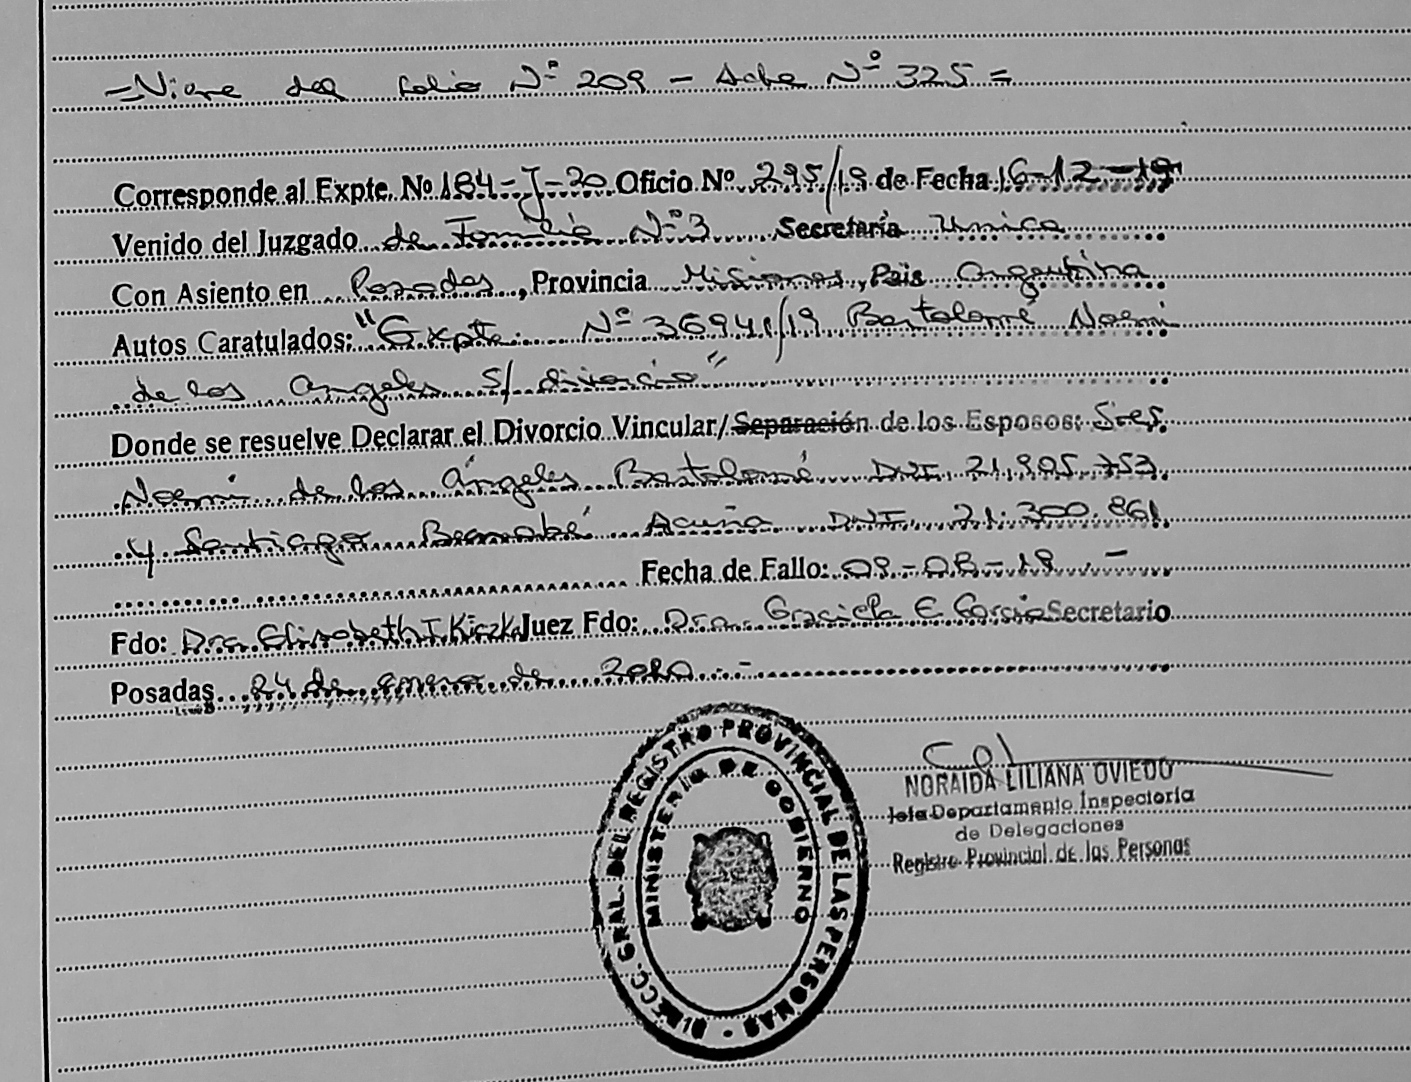 -Viene del folio Nº 209 - Acta Nº 325 =
Corresponde al Expte. Nº 184-J-20 Oficio Nº 295/19 de Fecha 16-12-19
Venido del Juzgado de Familia Nº3 Secretaría Unica
Con Asiento en Posadas, Provincia Misiones, Pais Argentina
Autos Caratulados: "Expte. Nº 36941/19 Bartolomé Noemi
de los Angeles s/ divorcio"
Donde se resuelve Declarar el Divorcio Vincular/Separación de los Esposos: Sres.
Noemi de los Ángeles Bartolomé DNI 21.905.753
y Santiago Bernabé Acuña DNI 21.300.861
Fecha de Fallo: 09-08-19 -
Fdo: Dra. Elisabeth I. Kiczk Juez Fdo: Dra. Graciela E. Garcia Secretario
Posadas 24 de enero de 2020 -
DIRECC. GRAL. DEL REGISTRO PROVINCIAL DE LAS PERSONAS
MINISTERIO DE GOBIERNO
NORAIDA LILIANA OVIEDO
Jefa Departamento Inspectoria
de Delegaciones
Registro Provincial de las Personas